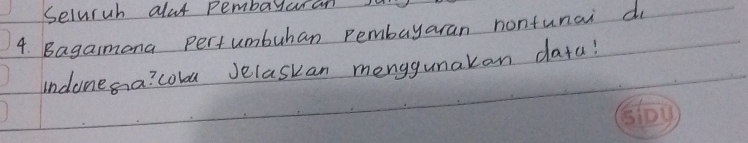 Seluruh alat Pembayaran
4. Bagaimana Pertumbuhan Pembayaran nontunai di
indonesia? coba Jelaskan menggunakan data!
SIDU